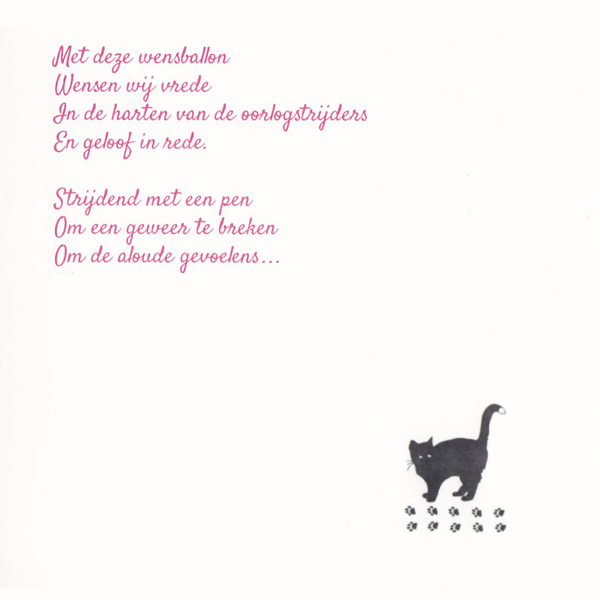 Met deze wensballon
Wensen wij vrede
In de harten van de oorlogstrijders
En geloof in rede.

Strijdend met een pen
Om een geweer te breken
Om de aloude gevoelens...